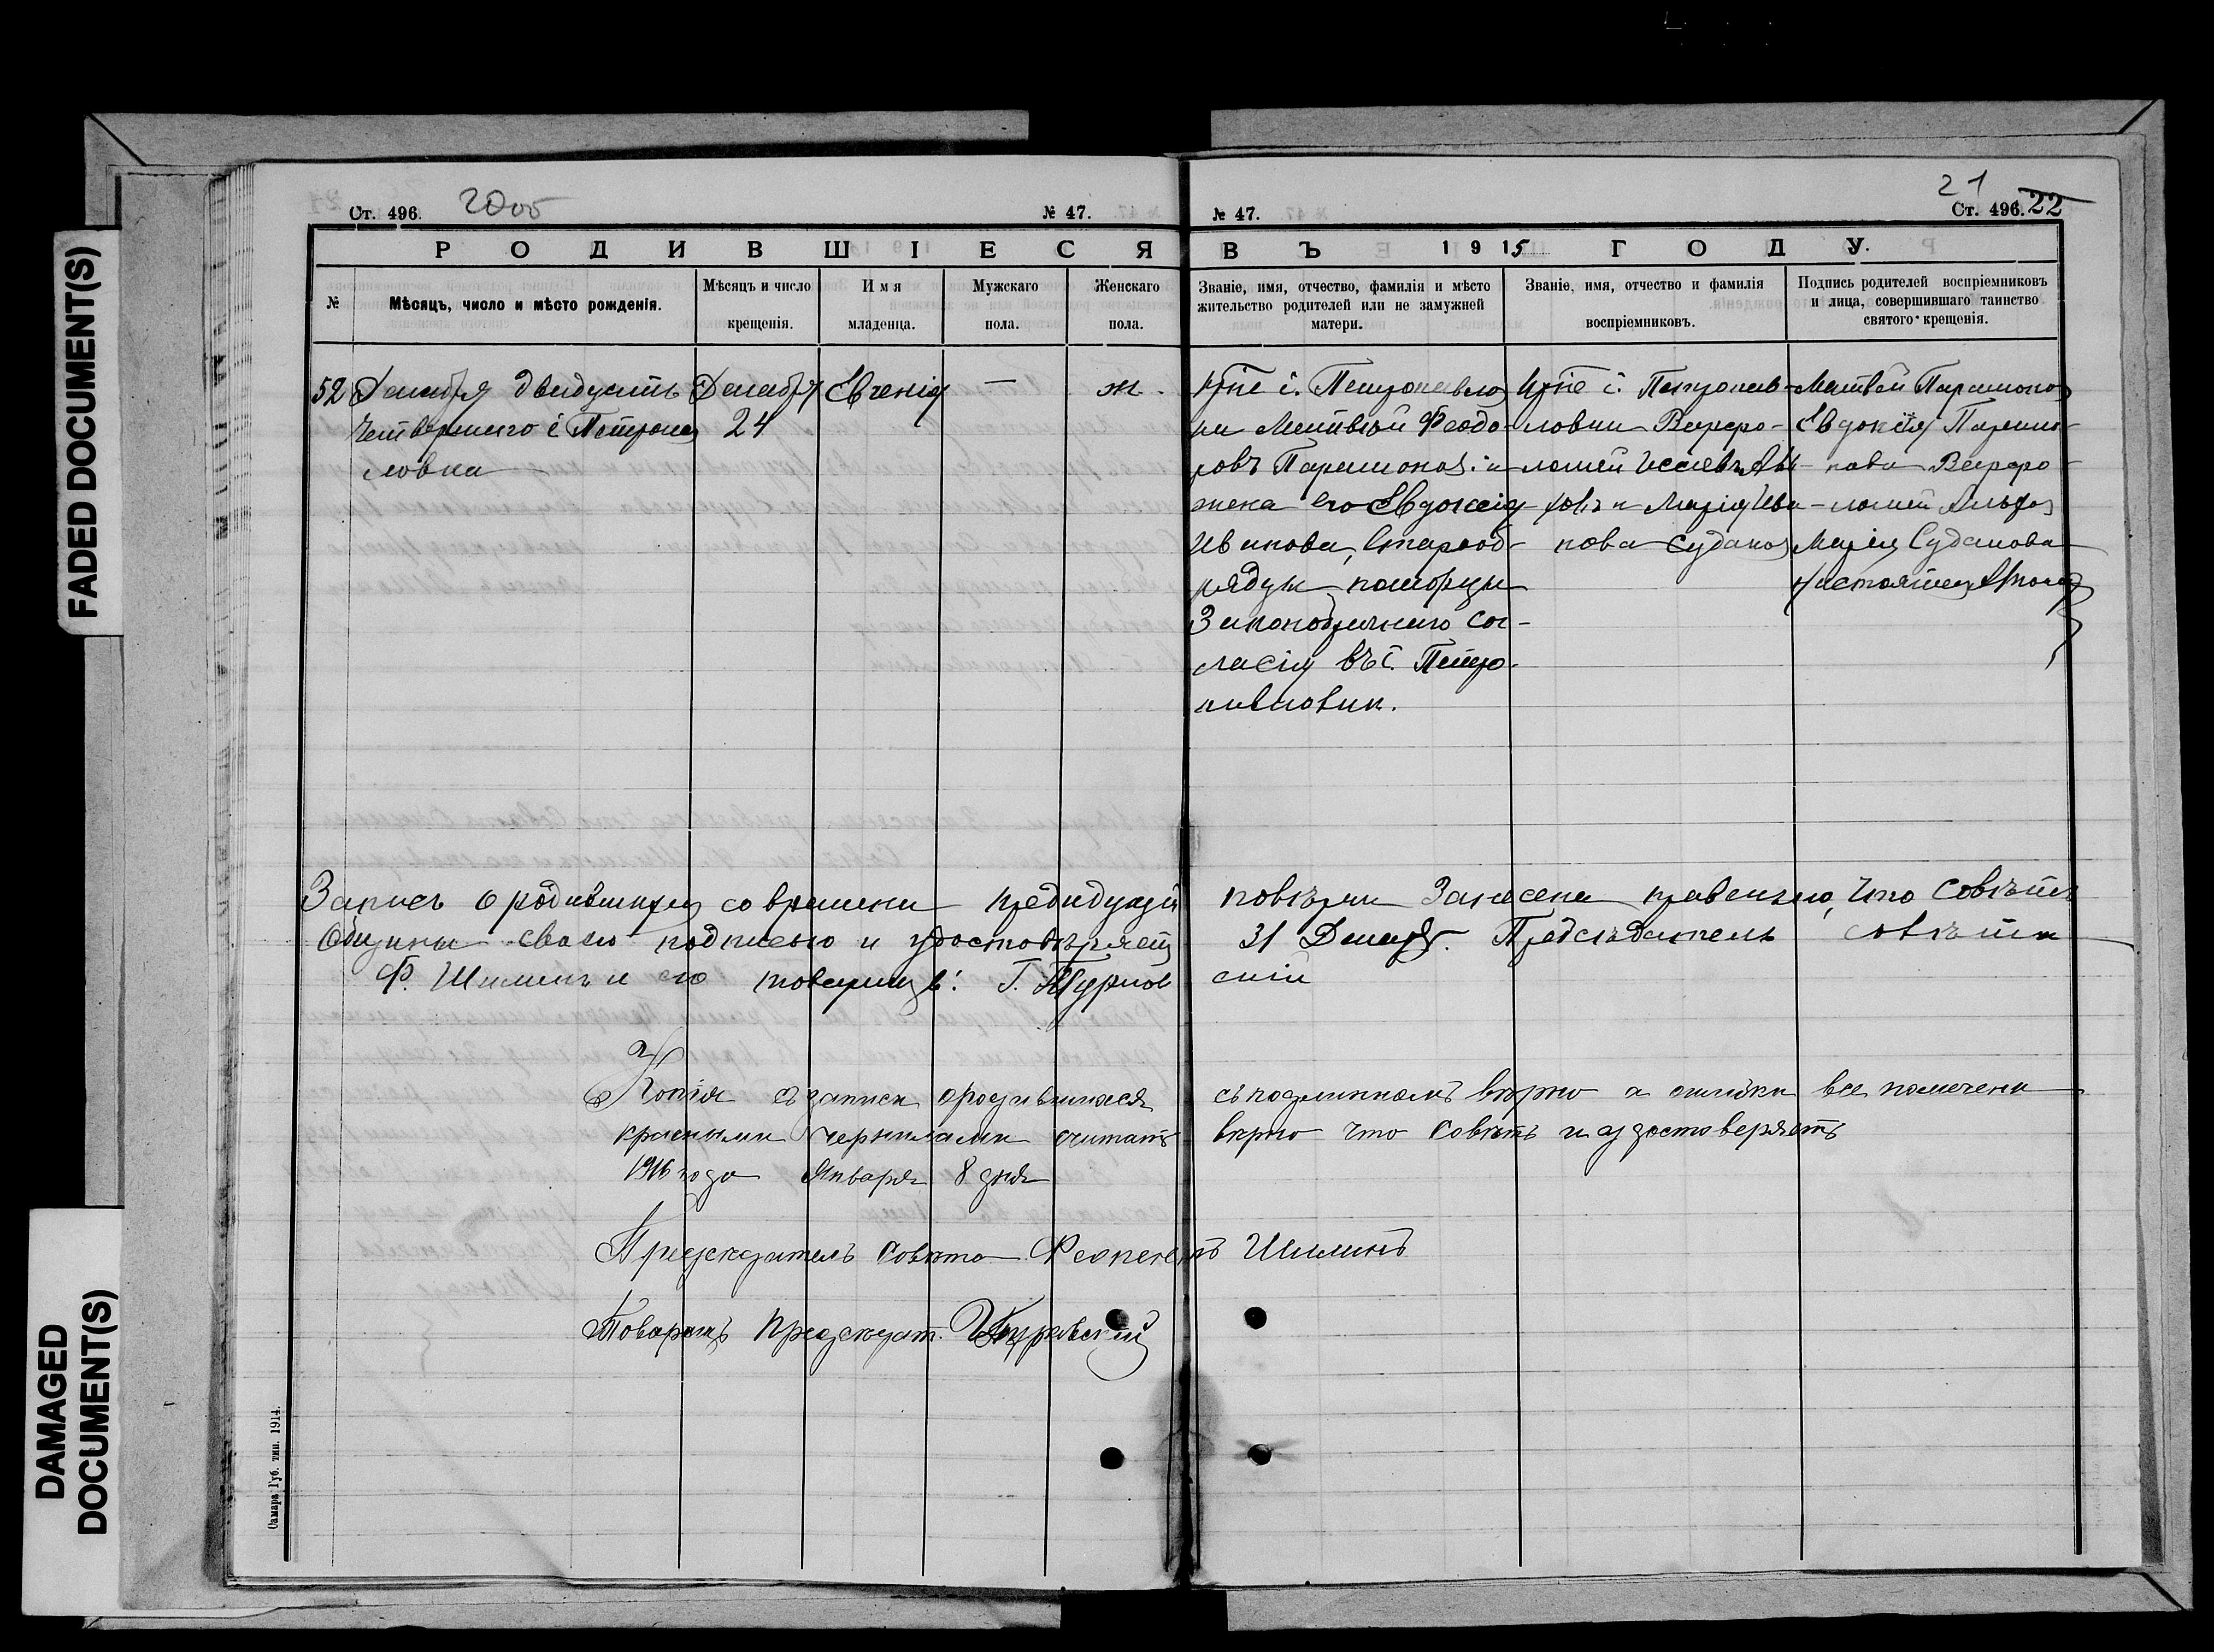 FADED DOCUMENT(S)
DAMAGED
DOCUMENT(S)
21
Ст. 496. 20об
№ 47.
№ 47.
Ст. 496. 22
РОДИВШІЕСЯ
ВЪ 1915 ГОДУ.
№
Мѣсяцъ, число и мѣсто рожденія.
Мѣсяцъ и число крещенія.
Имя младенца.
Мужскаго пола.
Женскаго пола.
Званіе, имя, отчество, фамилія и мѣсто
жительство родителей или не замужней
матери.
Званіе, имя, отчество и фамилія
воспріемниковъ.
Подпись родителей воспріемниковъ
и лица, совершившаго таинство
святого крещенія.
52
Декабря двадцать
четвертаго с Петропав
ловка
Декабря
24
Евгенія
—
ж.
Кр͠не с. Петропавлов
ки Матвей Феодо-
ровъ Парамонов. и
жена его Евдокія
Иванова, Старооб-
рядцы поморцы
Законобрачнаго сог-
ласія въ с. Петро-
павловки.
Кр͠не с. Петропав-
ловки Варфо-
ломей Исаевъ
и Марія Ива-
нова Судаков
Матвей Парамонов
Евдокія Парамо-
нова Варфо-
ломей
Марія Судакова
Настоятель
Запись о родившихся со времени предидущей
повѣрки Занесена правельно, что Совѣтъ
Общины своею подписью и удостовѣряетъ
31 Декабр. Предсѣдатель совѣта
Ф. Шилинъ и его товарищъ: Г.
скій
Копія съ записи ородившихся
съ подлинномъ вѣрно а ошибки все помечены
красными чернилами считать
вѣрно что Совѣтъ и удостоверяетъ
1916 года Января 8 дня
Предсѣдатель Совѣта Шилинъ
Товарищъ Предсѣдат.
Самара Губ. тип. 1914.